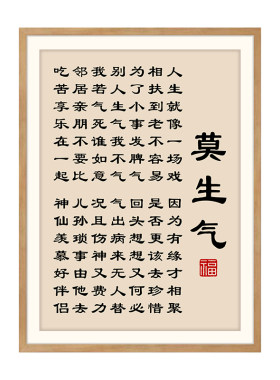 莫生气
福
人生就像一场戏 因为有缘才相聚
相扶到老不容易 是否更该去珍惜
为了小事发脾气 回头想想又何必
别人生气我不气 气出病来无人替
我若气死谁如意 况且伤神又费力
邻居亲朋不要比 儿孙琐事由他去
吃苦享乐在一起 神仙羡慕好伴侣